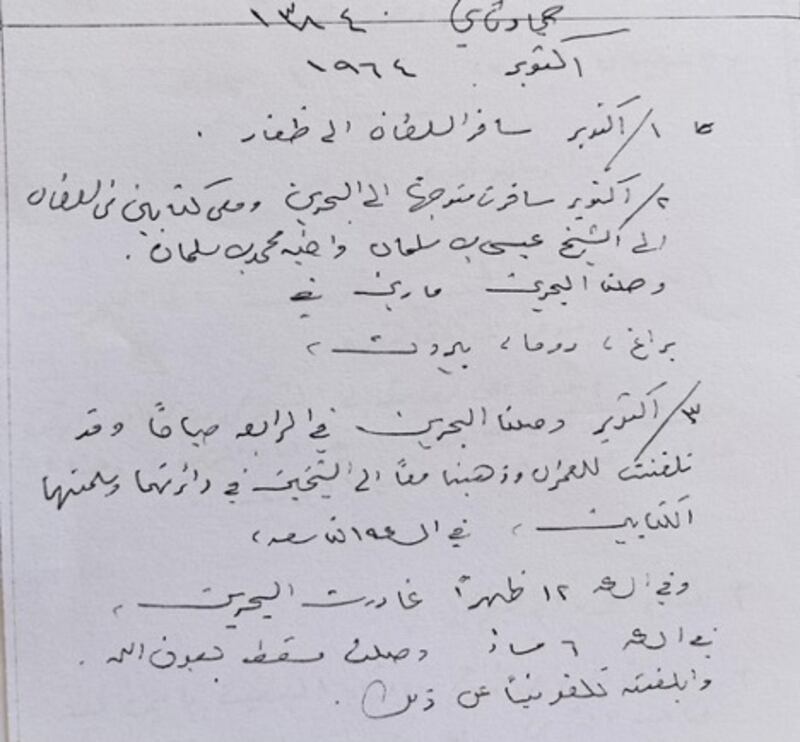 جماد ثاني ١٣٨٤
اكتوبر ١٩٦٤
١/ اكتوبر سافر السلطان الى ظفار .
٢/ اكتوبر سافرت متوجها الى البحرين ومعي كتابين من السلطان
الى الشيخ عيسى بن سلمان واخيه محمد بن سلمان .
وصلنا البحرين مارين في
براغ ، روما ، بيروت ،
٣/ اكتوبر وصلنا البحرين في الرابعه صباحًا وقد
تلفنت للعمران وذهبنا معًا الى الشيخين في دائرتهما وسلمتهما
الكتابين ، في الساعه التاسعه ،
وفي الساعه ١٢ ظهرًا غادرت البحرين ،
في الساعه ٦ مساءً وصلت مسقط بعون الله .
وابلغته تلفونيًا عن ذلك .